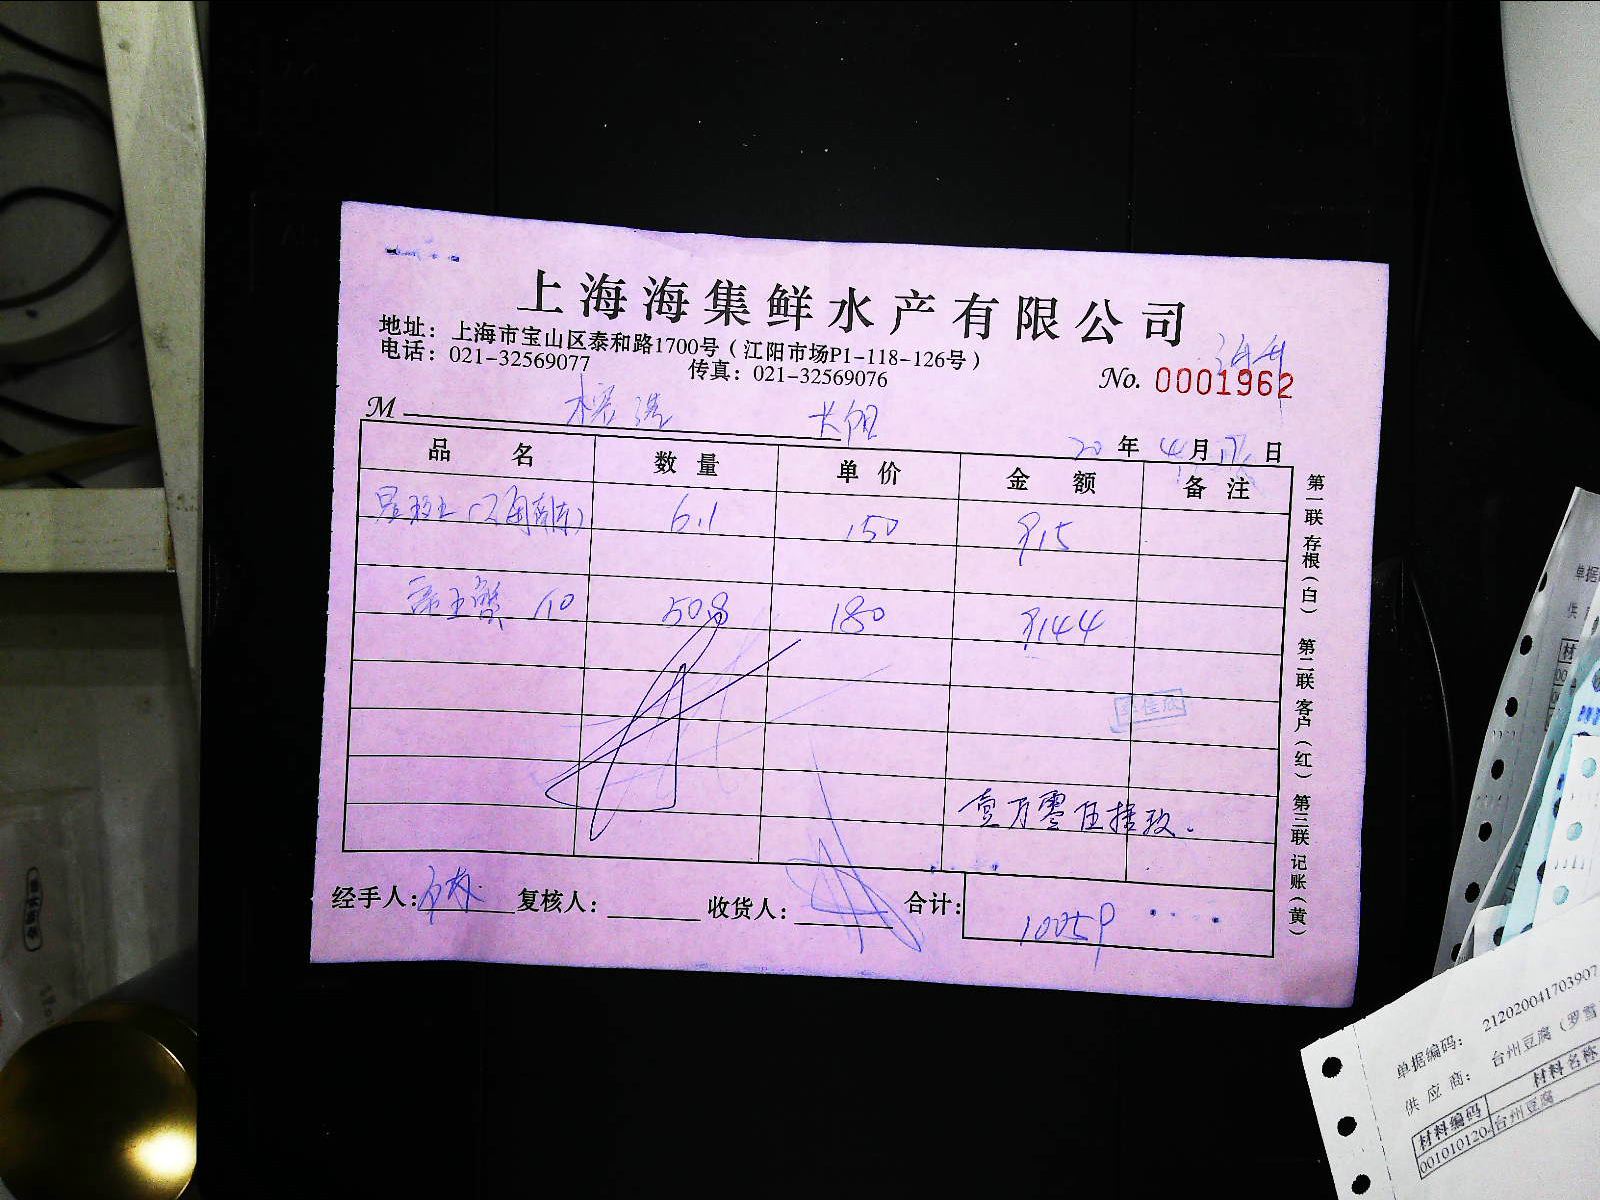 上海海集鲜水产有限公司
地址：上海市宝山区泰和路1700号（江阳市场P1-118-126号）
电话：021-32569077 传真：021-32569076
No. 0001962
M
20 年 4 月 日
品 名 数 量 单 价 金 额 备 注
6.1 150 915
帝王蟹 1/10 50.8 180 9144
壹万零伍拾玖.
经手人： 复核人： 收货人： 合计： 10059
第一联存根（白） 第二联客户（红） 第三联记账（黄）
单据编码： 212020041703907
供 应 商： 台州豆腐（罗雪
材料编码 材料名称
001010120 台州豆腐